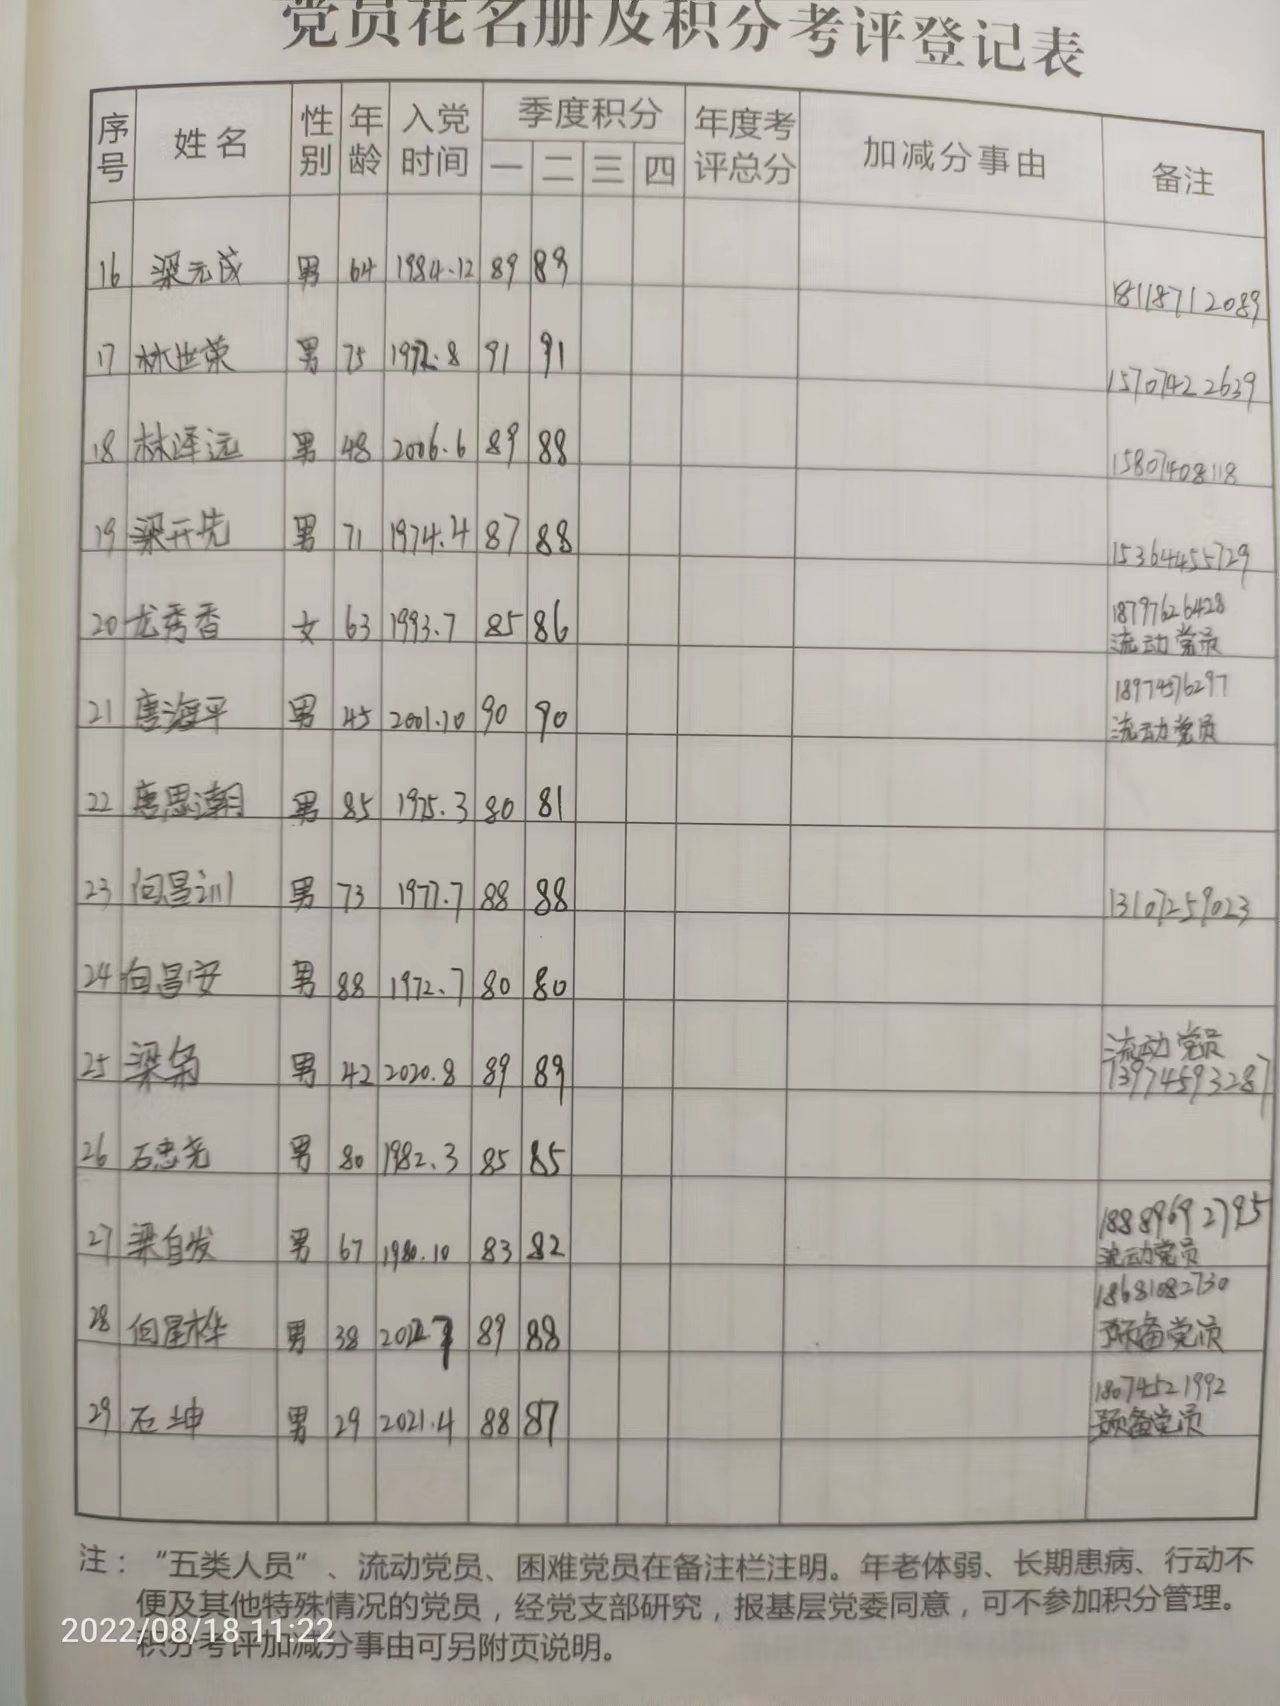 党员花名册及积分考评登记表
序号 姓名 性别 年龄 入党时间 季度积分 一 二 三 四 年度考评总分 加减分事由 备注
16 梁元成 男 64 1984.12 89 89 18118712089
17 林世荣 男 75 1972.8 91 91 15707422639
18 林泽远 男 48 2006.6 89 88 15807408118
19 梁开先 男 71 1974.4 87 88 15364455729
20 龙秀香 女 63 1993.7 85 86 18797626428
流动党员
21 唐海平 男 45 2001.10 90 90 18974576297
流动党员
22 唐思潮 男 85 1975.3 80 81
23 向昌训 男 73 1977.7 88 88 13107259023
24 向昌安 男 88 1972.7 80 80
25 梁 男 42 2020.8 89 89 流动党员
13974593287
26 石忠尧 男 80 1982.3 85 85
27 梁自发 男 67 1980.10 83 82 18889692795
流动党员
28 向星桦 男 38 89 88 18681082730
预备党员
29 石坤 男 29 2021.4 88 87 18074521992
预备党员
注：“五类人员”、流动党员、困难党员在备注栏注明。年老体弱、长期患病、行动不
便及其他特殊情况的党员，经党支部研究，报基层党委同意，可不参加积分管理。
积分考评加减分事由可另附页说明。
2022/08/18 11:22